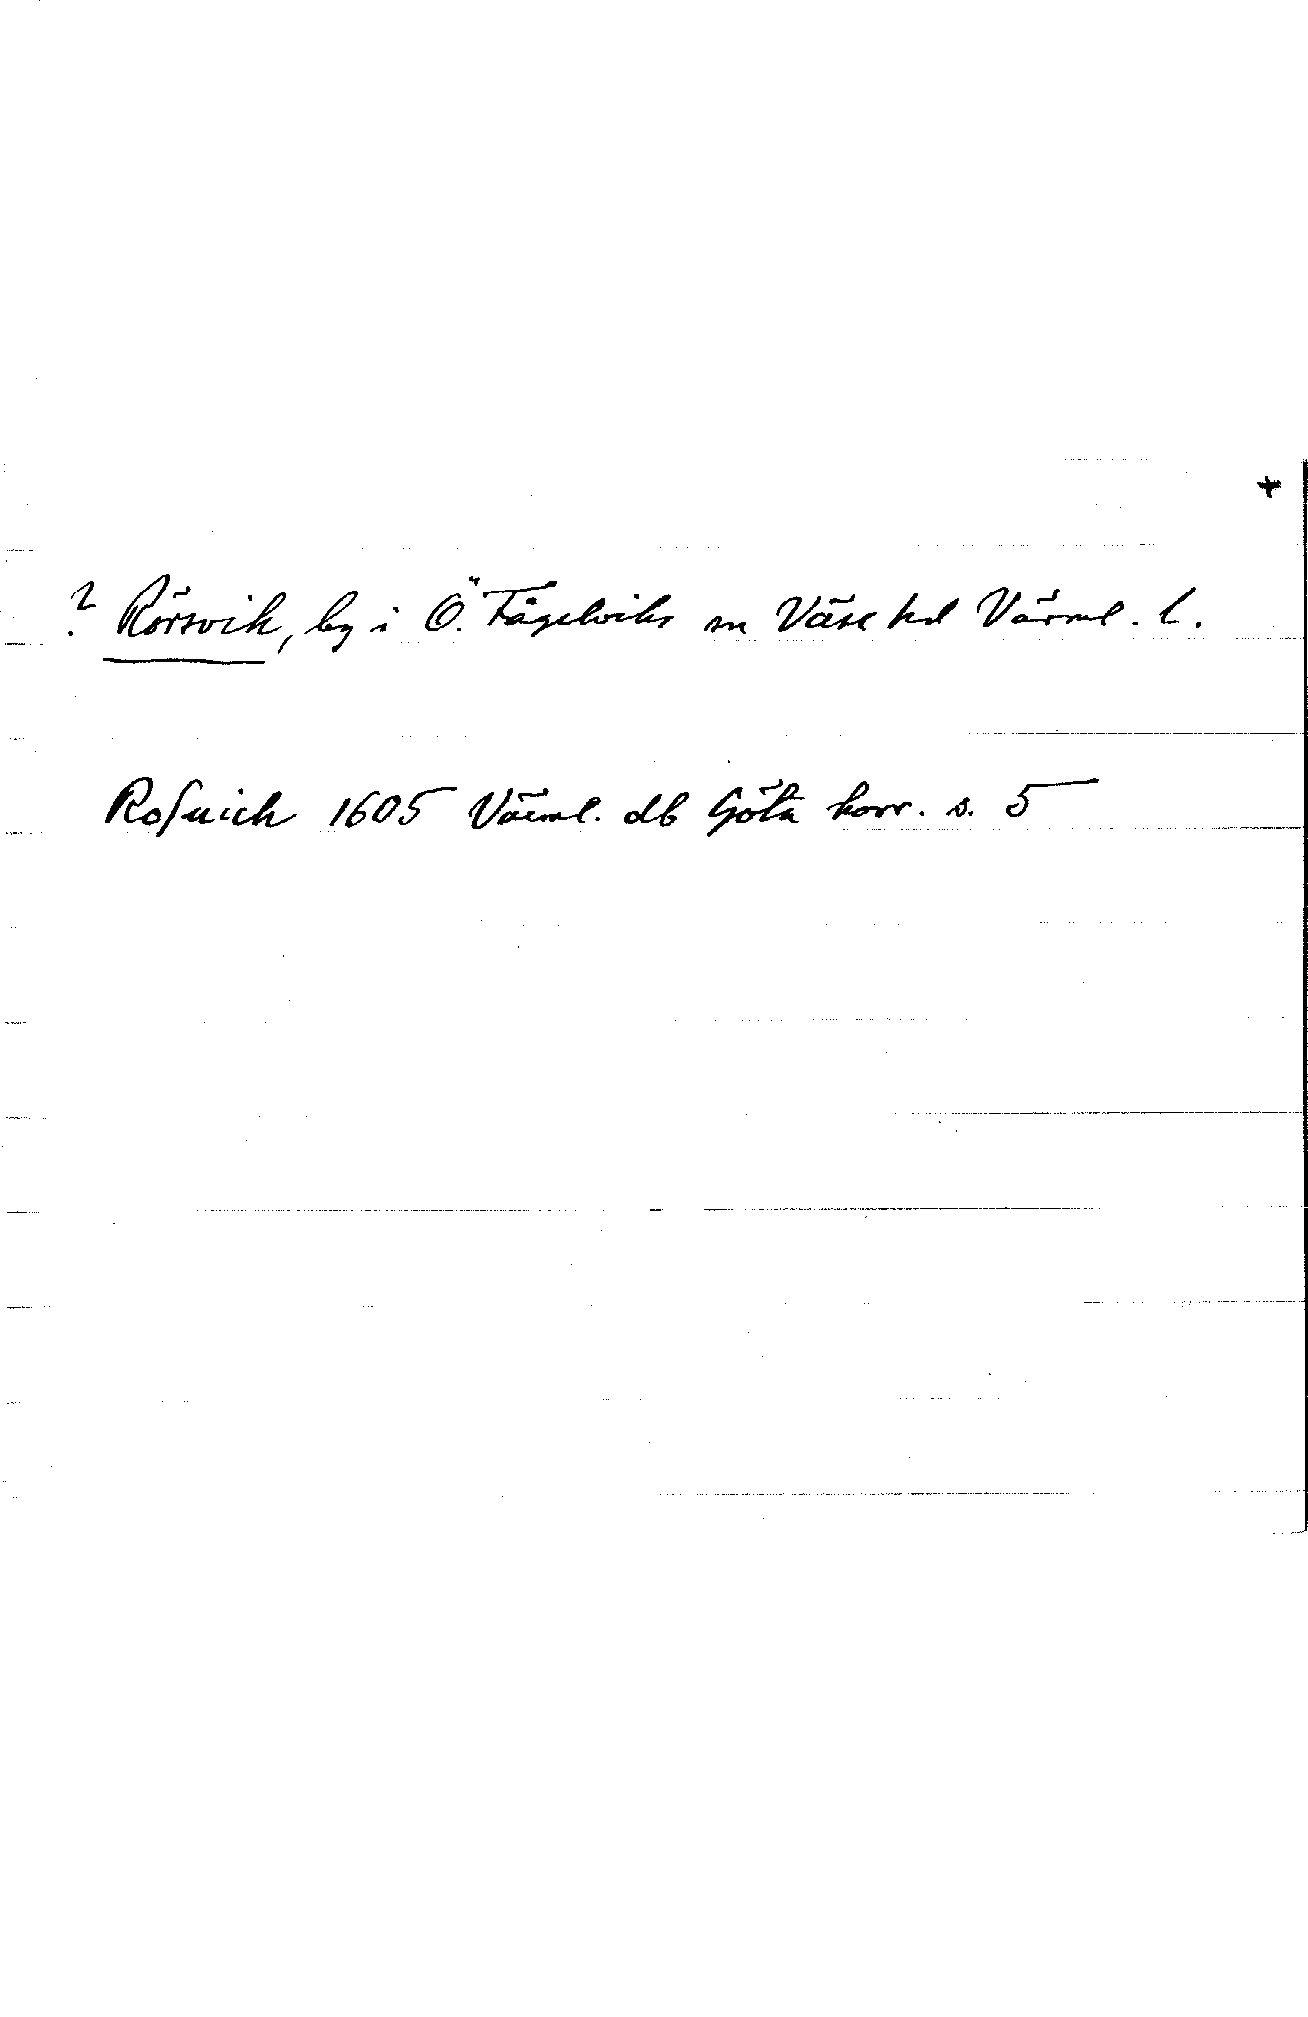 +
? Rörsvik, by i Ö. Fågelviks sn Väse hd Värml. l.
Rosuich 1605 Värml. db Göta hovr. s. 5